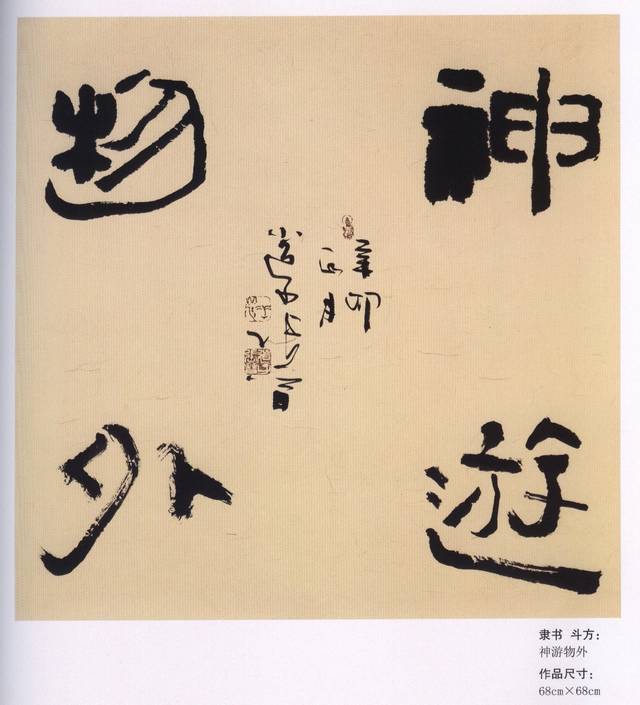 神遊
物外
辛卯
正月
隶书 斗方：
神游物外
作品尺寸：
68cm×68cm